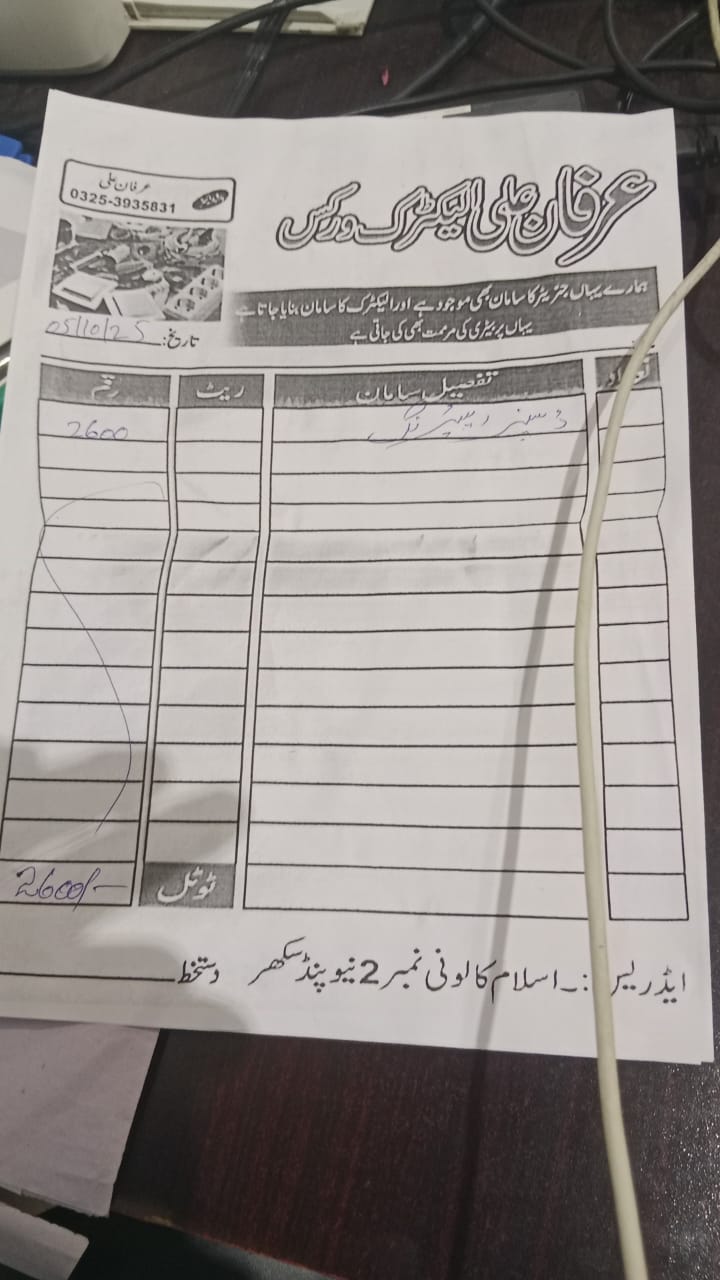 عرفان علی
0325-3935831
عرفان علی الیکٹرک ورکس
ہمارے یہاں جنریٹر کا سامان بھی موجود ہے اور الیکٹرک کا سامان بنایا جاتا ہے
یہاں پر بیٹری کی مرمت بھی کی جاتی ہے
تاریخ: 05/10/25
تفصیل سامان ریٹ رقم
2600
ٹوٹل 2600/-
ایڈریس :۔ اسلام کالونی نمبر 2 نیو پنڈ سکھر دستخط